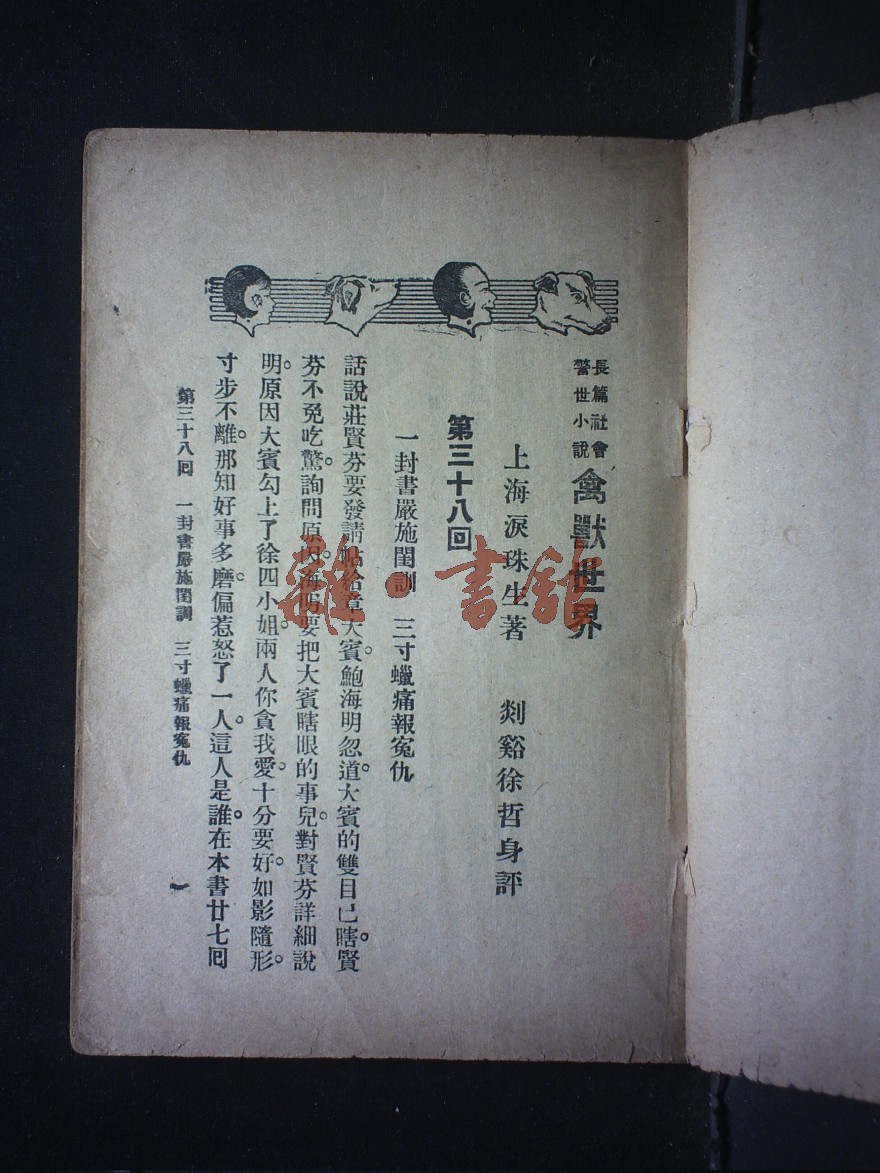 長篇社會
警世小說
禽獸世界
上海淚珠生著　剡谿徐哲身評
第三十八回
一封書嚴施閨訓　三寸蠟痛報冤仇
話說莊賢芬要發請帖給章大賓。鮑海明忽道大賓的雙目已瞎。賢
芬不免吃驚。詢問原因。海明要把大賓瞎眼的事兒。對賢芬詳細說
明。原因大賓勾上了徐四小姐。兩人你貪我愛。十分要好。如影隨形。
寸步不離。那知好事多磨。偏惹怒了一人。這人是誰。在本書廿七回
第三十八回　一封書嚴施閨訓　三寸蠟痛報冤仇
一
雜·書館